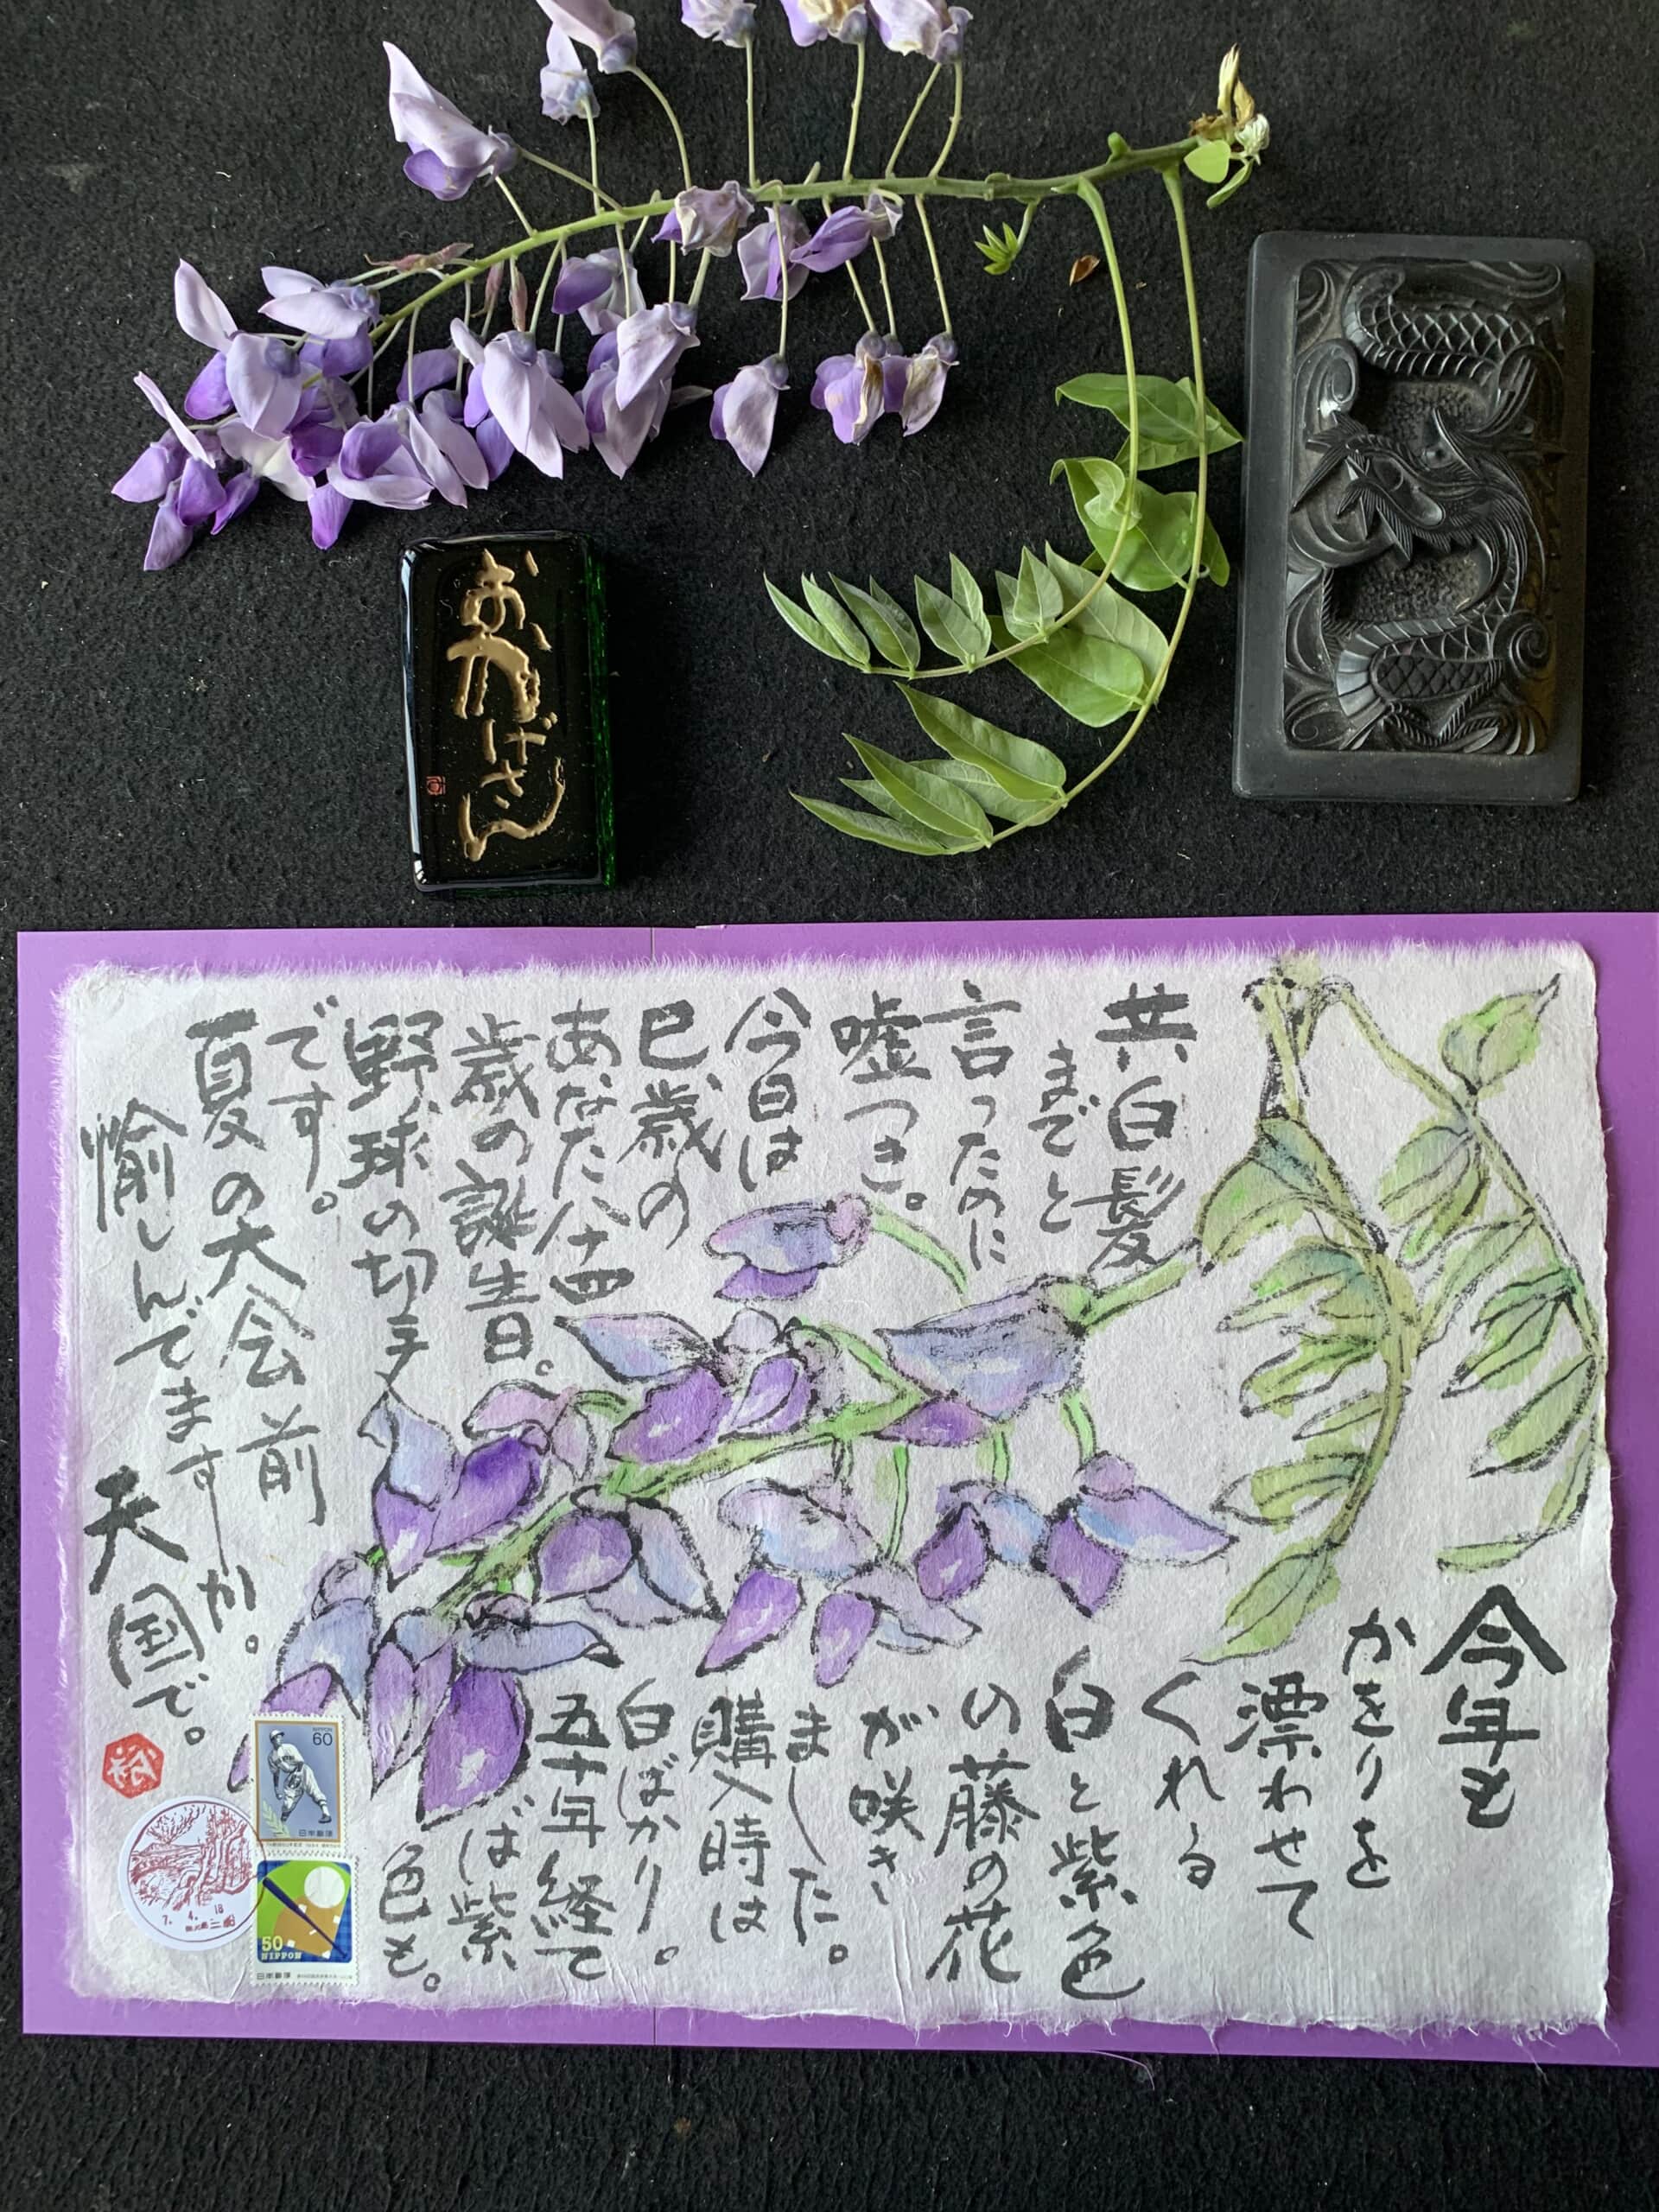 おかげさん
今年も
かをりを
漂わせて
くれる
白と紫色
の藤の花
が咲き
ました。
購入時は
白ばかり。
五十年経て
ば紫
色も。
共白髪
までと
言ったのに
嘘つき。
今日は
巳歳の
あなた八十四
歳の誕生日。
野球の切手
です。
夏の大会前
愉しんでますか。
天国で。
NIPPON
60
日本郵便
50
NIPPON
日本郵便
7. 4. 18